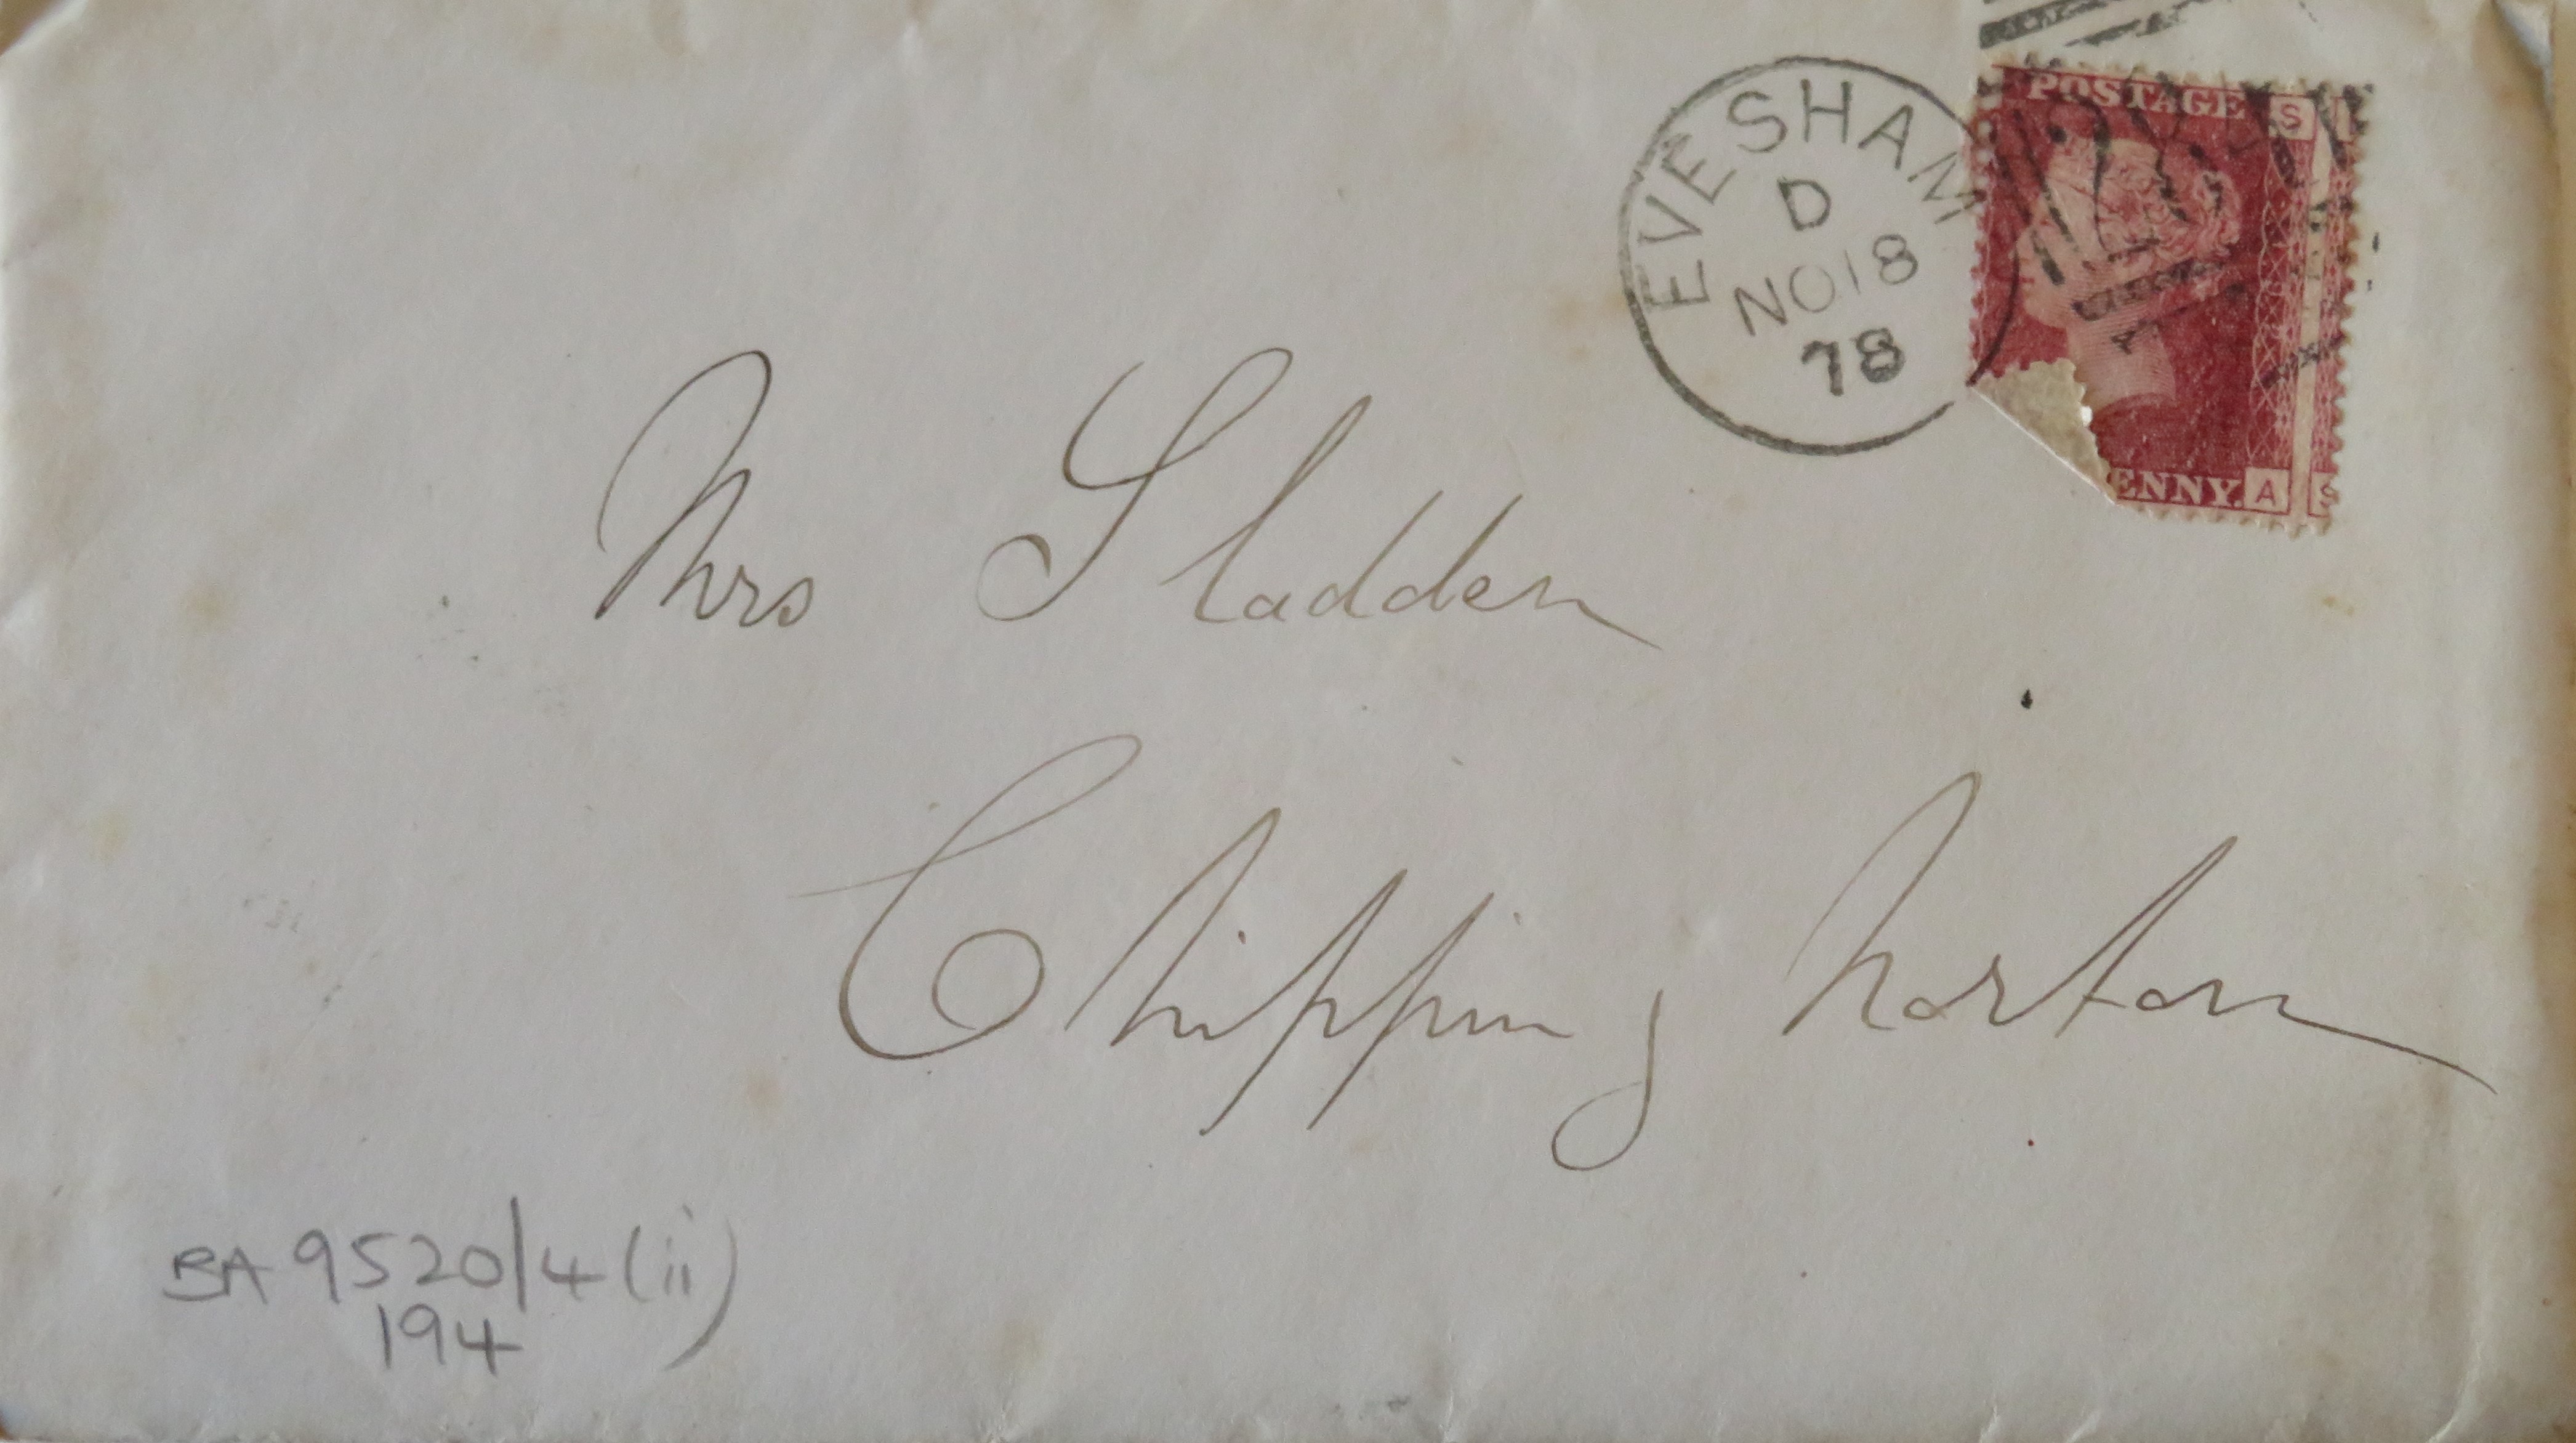 EVESHAM
D
NO 18
78
POSTAGE
S
ENNY.
A
S
Mrs Sladden
Chipping Norton
BA 9520/4(ii)
194